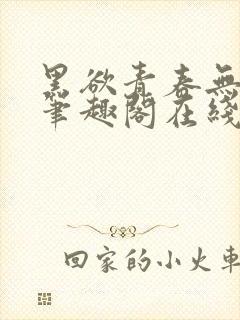 黑欲青春無
筆趣閣在綫
回家的小火車